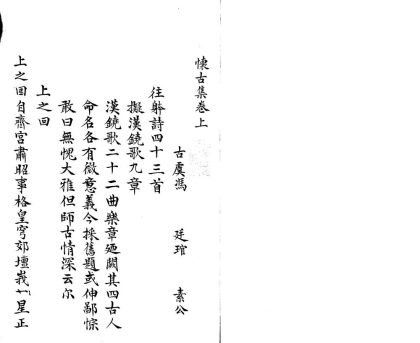 懐古集卷上
古虞馮　廷琯　素公
往躰詩四十三首
擬漢鐃歌九章
漢鐃歌二十二曲樂章廼闕其四古人
命名各有微意義今採舊題或伸鄙悰
敢曰無愧大雅但師古情深云尔
上之回
上之回自齋宮肅昭事格皇穹郊壇峩〻星正